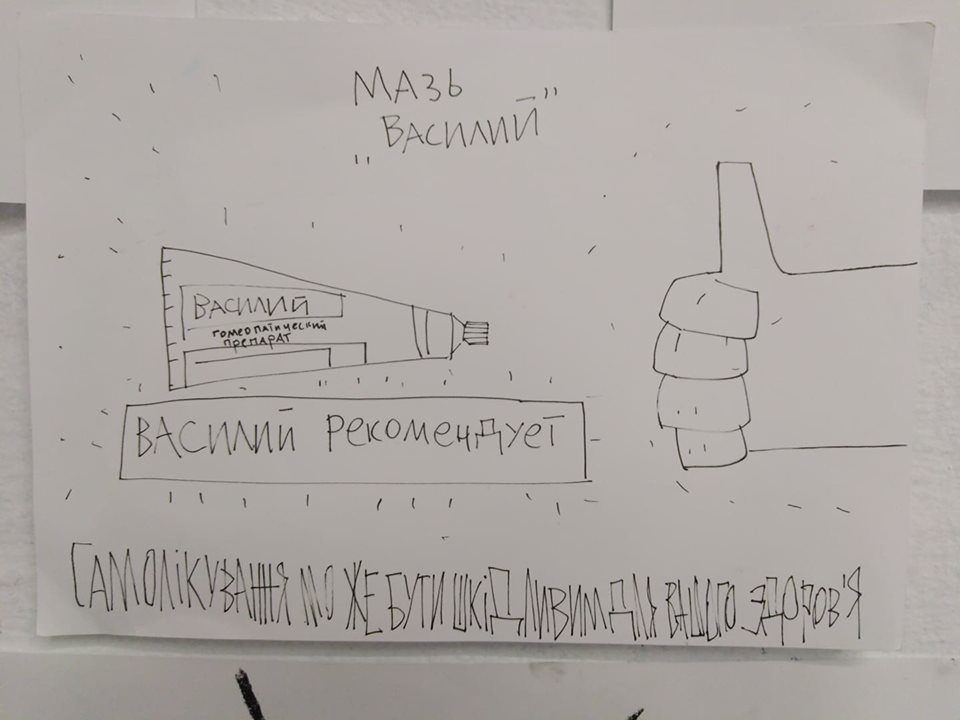 МАЗЬ
„ВАСИЛИЙ”
ВАСИЛИЙ
гомеопатический
препарат
ВАСИЛИЙ РЕКОМЕНДУЕТ
САМОЛІКУВАННЯ МОЖЕ БУТИ ШКІДЛИВИМ ДЛЯ ВАШЕГО ЗДОРОВ'Я